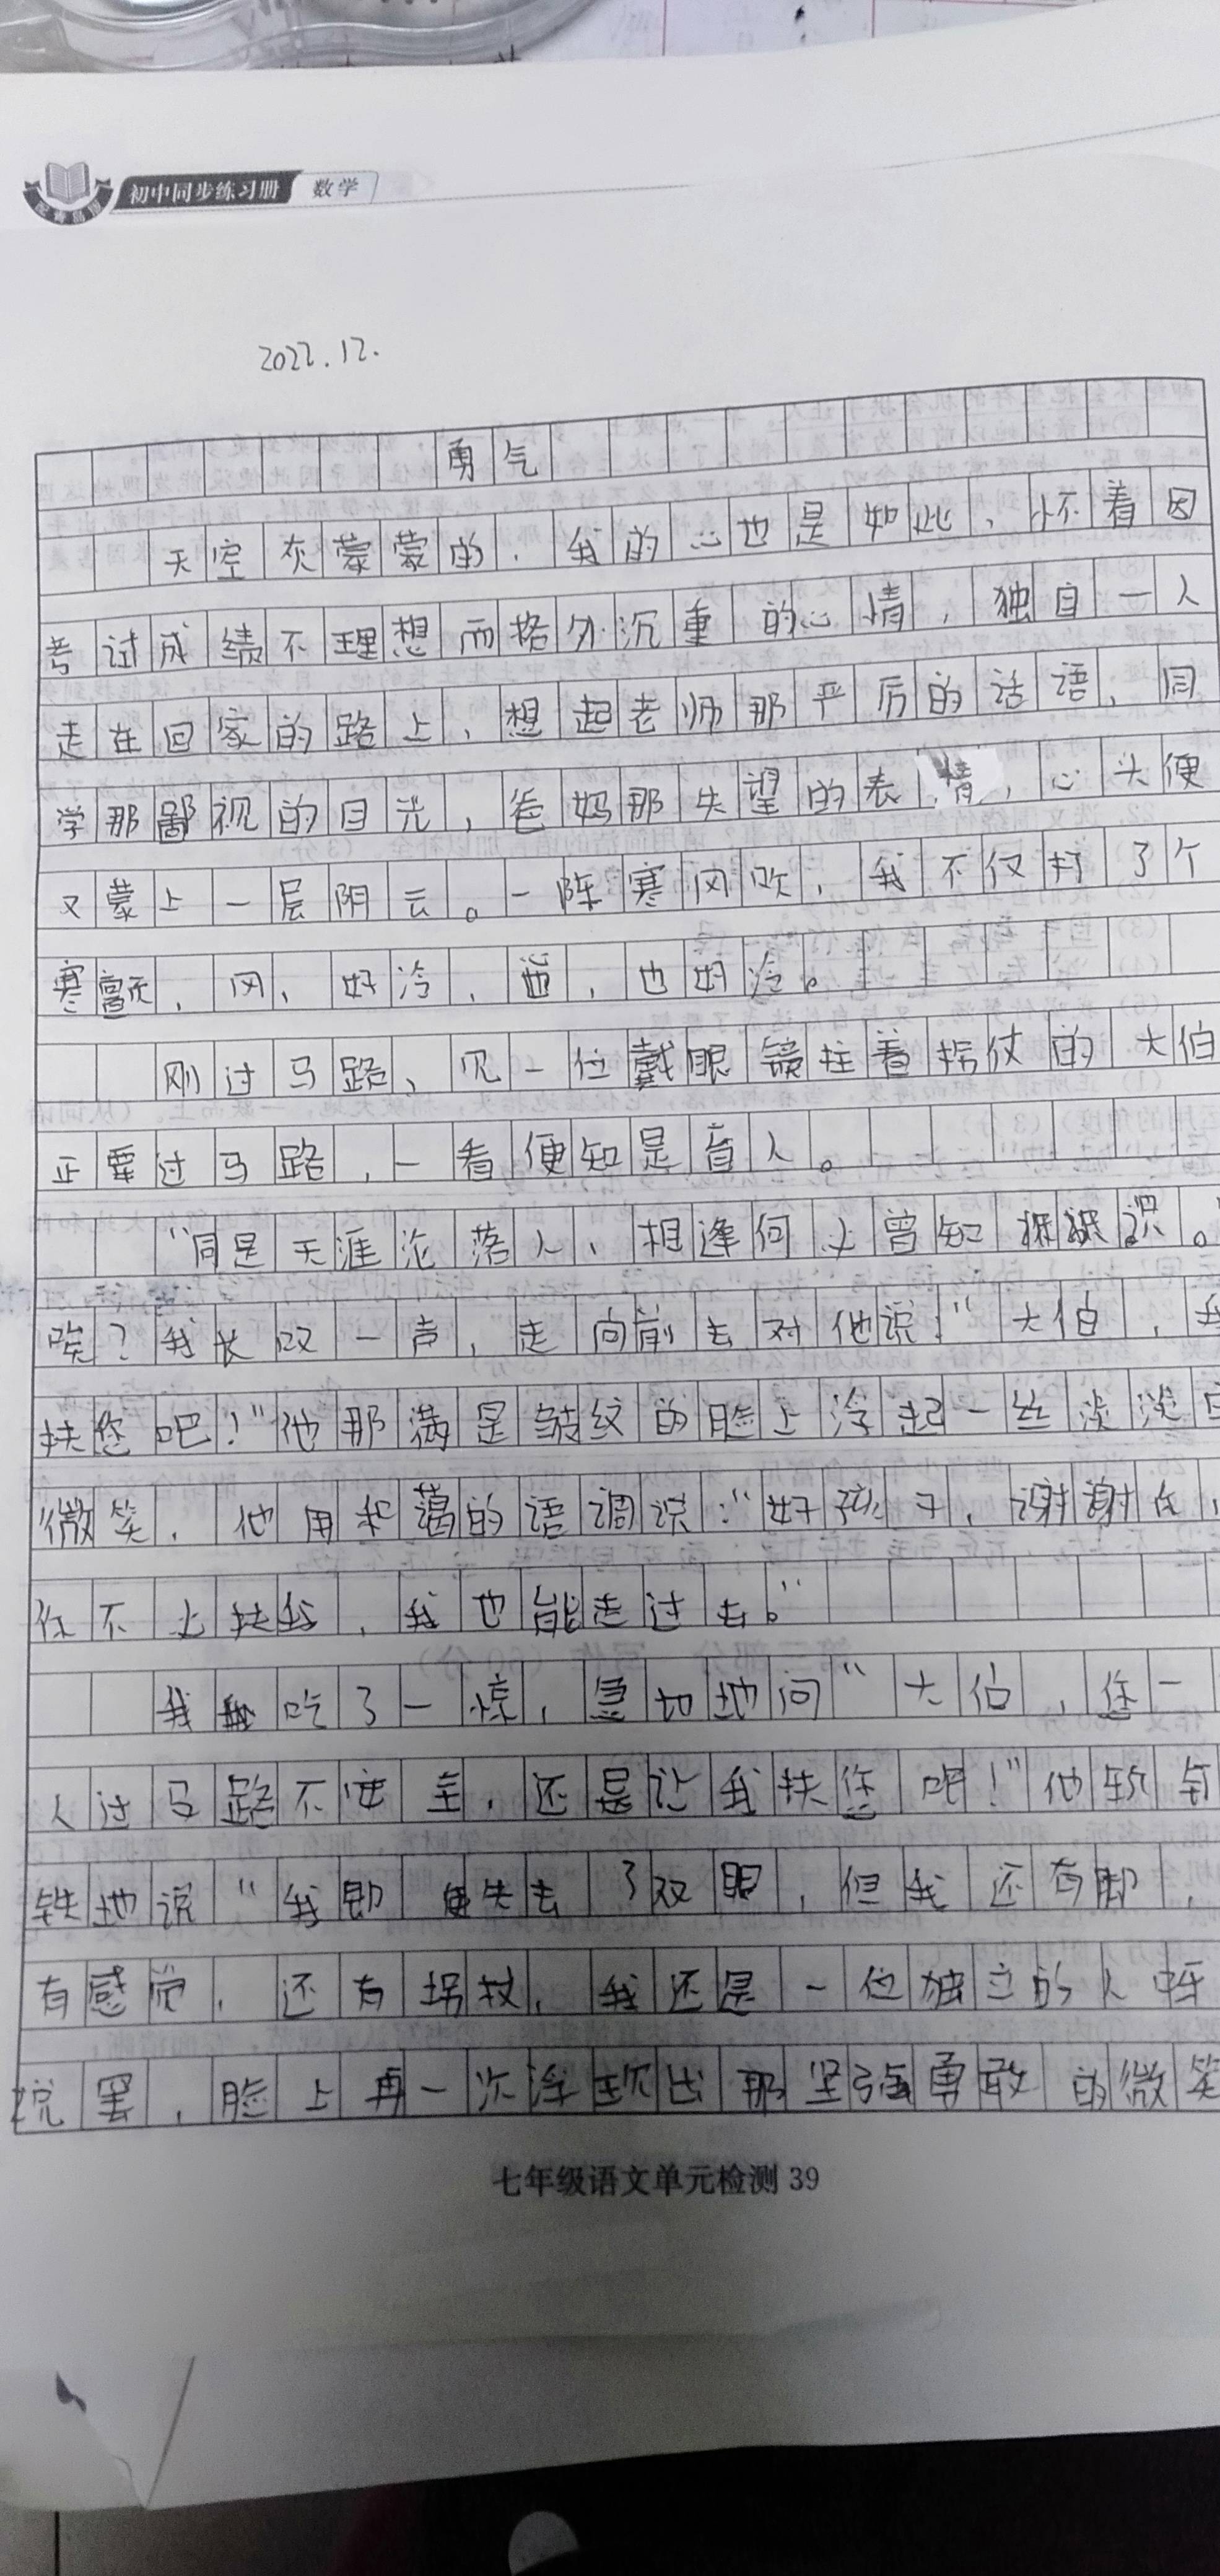 初中同步练习册 数学
2022.12.
勇气
天空灰蒙蒙的，我的心也是如此，怀着因
考试成绩不理想而格外沉重的心情，独自一人
走在回家的路上，想起老师那严厉的话语，同
学那鄙视的目光，爸妈那失望的表情，心头便
又蒙上一层阴云。一阵寒风吹，我不仅打了个
寒颤，风，好冷，心，也好冷。
刚过马路，见一位戴眼镜拄着拐杖的大伯
正要过马路，一看便知是盲人。
“同是天涯沦落人，相逢何必曾知相识。”
唉？我长叹一声，走向前去对他说：“大伯，我
扶您吧！”他那满是皱纹的脸上浮起一丝淡淡
微笑，他用和蔼的语调说：“好孩子，谢谢你，
你不必扶我，我也能走过去。”
我吃了一惊，急切地问“大伯，您一
人过马路不安全，还是让我扶您吧！”他斩钉
铁地说“我即使失去了双眼，但我还有脚，
有感觉，还有拐杖，我还是一位独立的人呀
说罢，脸上再一次浮现出那坚强勇敢的微笑
七年级语文单元检测 39